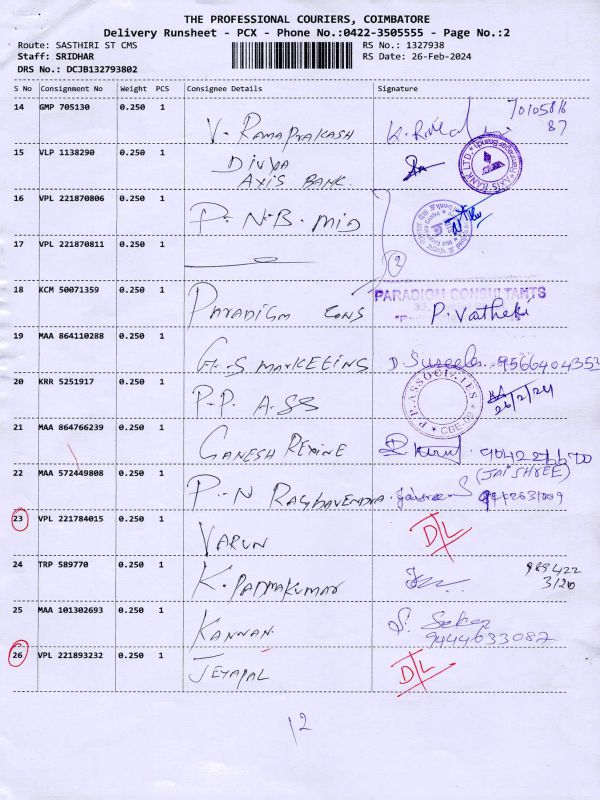 THE PROFESSIONAL COURIERS, COIMBATORE
Delivery Runsheet - PCX - Phone No.:0422-3505555 - Page No.:2
Route: SASTHIRI ST CMS RS No.: 1327938
Staff: SRIDHAR RS Date: 26-Feb-2024
DRS No.: DCJB132793802
S No Consignment No Weight PCS Consignee Details Signature
14 GMP 705130 0.250 1 V. RAMAPRAKASH
87
15 VLP 1138290 0.250 1 DIVYA
AXIS BANK
AXIS BANK LTD.
16 VPL 221870806 0.250 1 P.N.B. MID
17 VPL 221870811 0.250 1
2
18 KCM 50071359 0.250 1 PARADIGM CONS
PARADIGM CONSULTANTS
P. Vatheki
19 MAA 864110288 0.250 1 G.S MARKETING D. Suseela 9566404353
20 KRR 5251917 0.250 1 P.P. ASS
P.P. ASSOCIATES
CBE
26/2/24
21 MAA 864766239 0.250 1 GANESH REXINE
22 MAA 572449808 0.250 1 P.N RAGHAVENDRA (JAISHREE)
23 VPL 221784015 0.250 1 VARUN D/L
24 TRP 589770 0.250 1 K. PADMAKUMAR 989422
3120
25 MAA 101302693 0.250 1 KANNAN S. Sekar
9444033087
26 VPL 221893232 0.250 1 JEYAPAL D/L
12